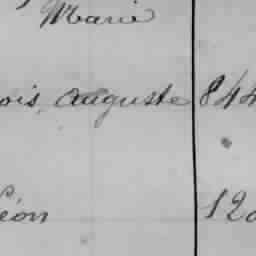 Marie
ois Auguste 844
éon 120